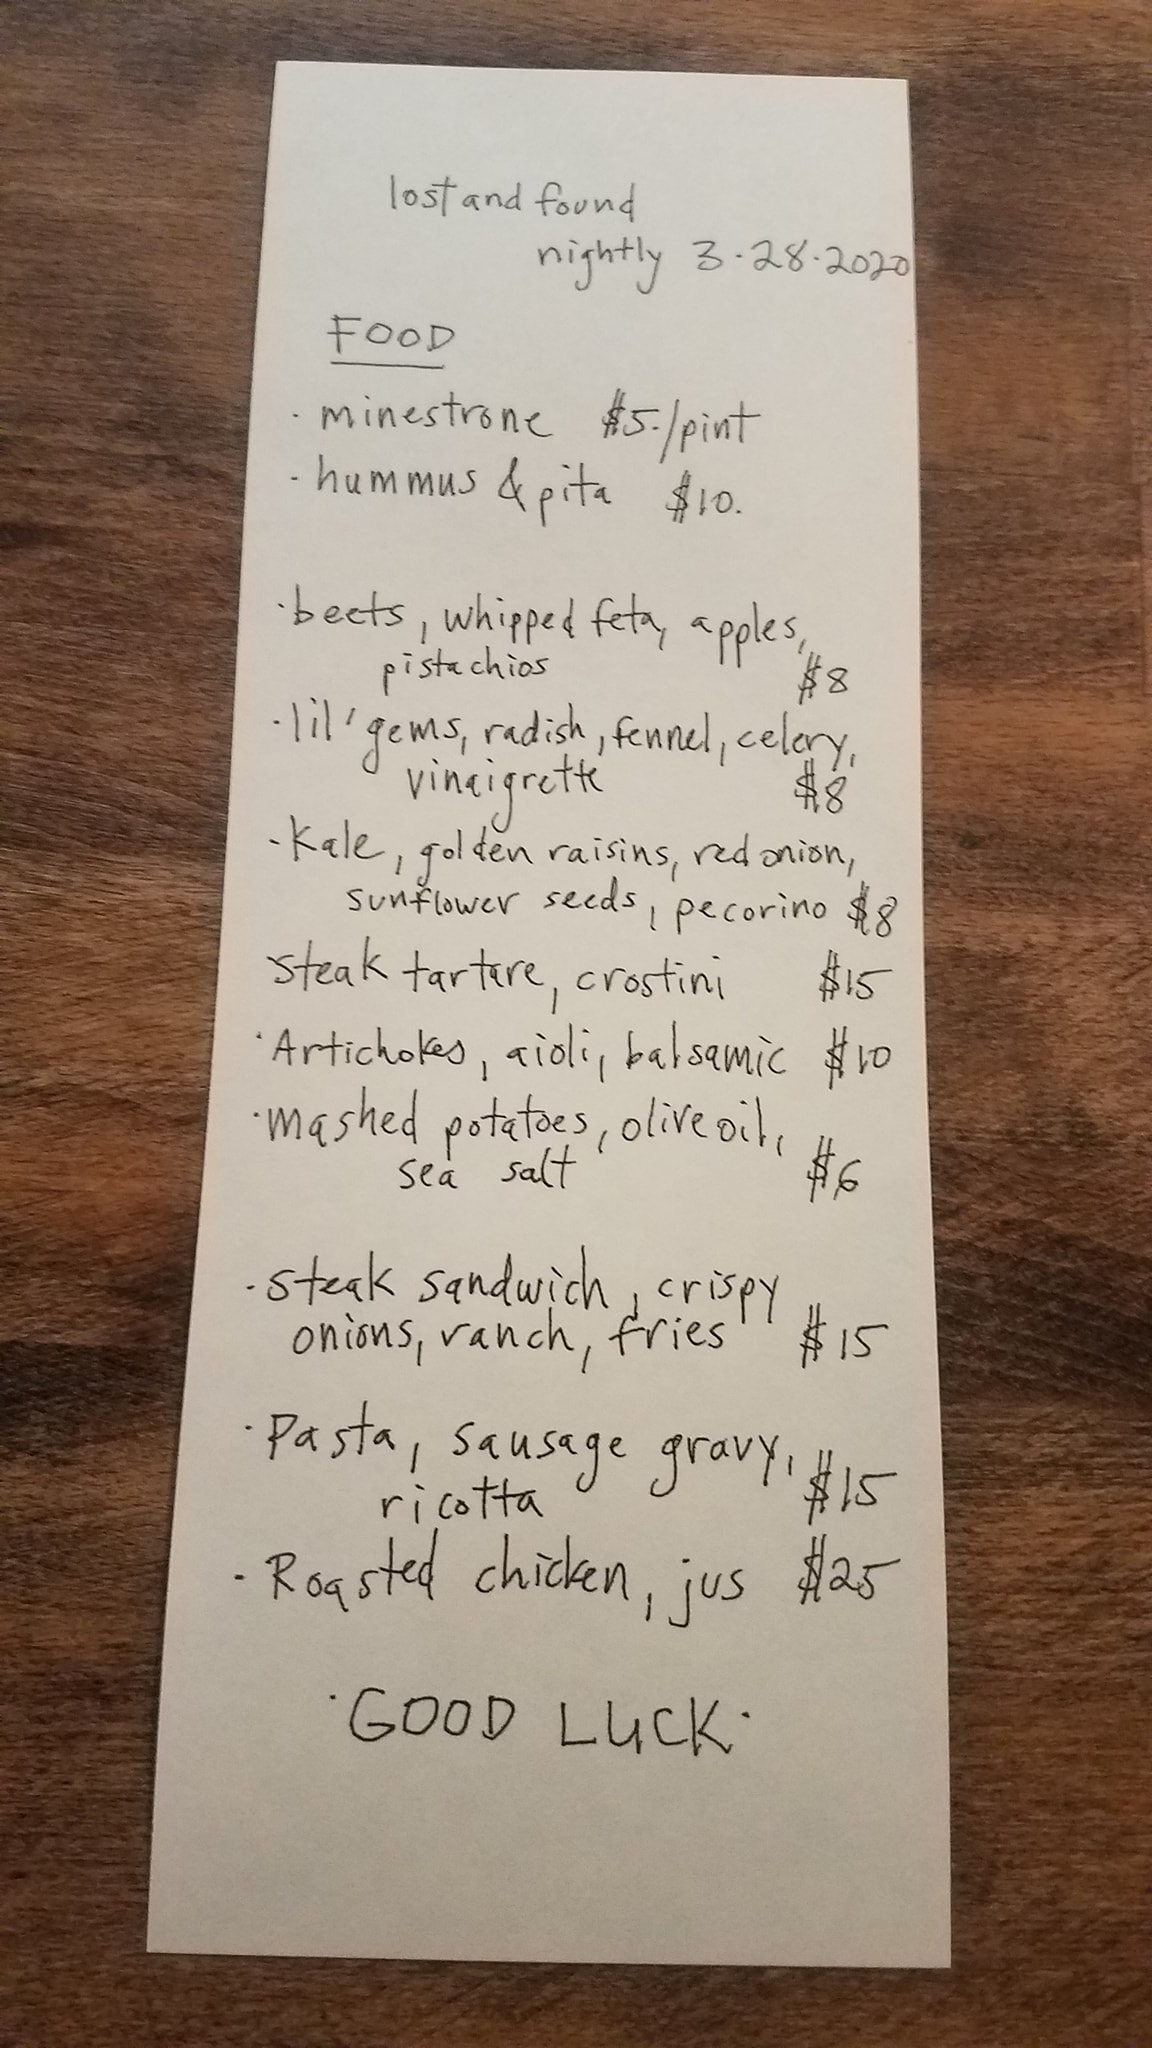 lost and found
nightly 3.28.2020
FOOD
· minestrone $5./pint
- hummus & pita $10.
· beets, whipped feta, apples,
pistachios $8
· lil' gems, radish, fennel, celery,
vinaigrette $8
- Kale, golden raisins, red onion,
sunflower seeds, pecorino $8
steak tartare, crostini $15
· Artichokes, aioli, balsamic $10
· mashed potatoes, olive oil,
sea salt $6
- steak sandwich, crispy
onions, ranch, fries $15
· Pasta, sausage gravy,
ricotta $15
- Roasted chicken, jus $25
· GOOD LUCK ·